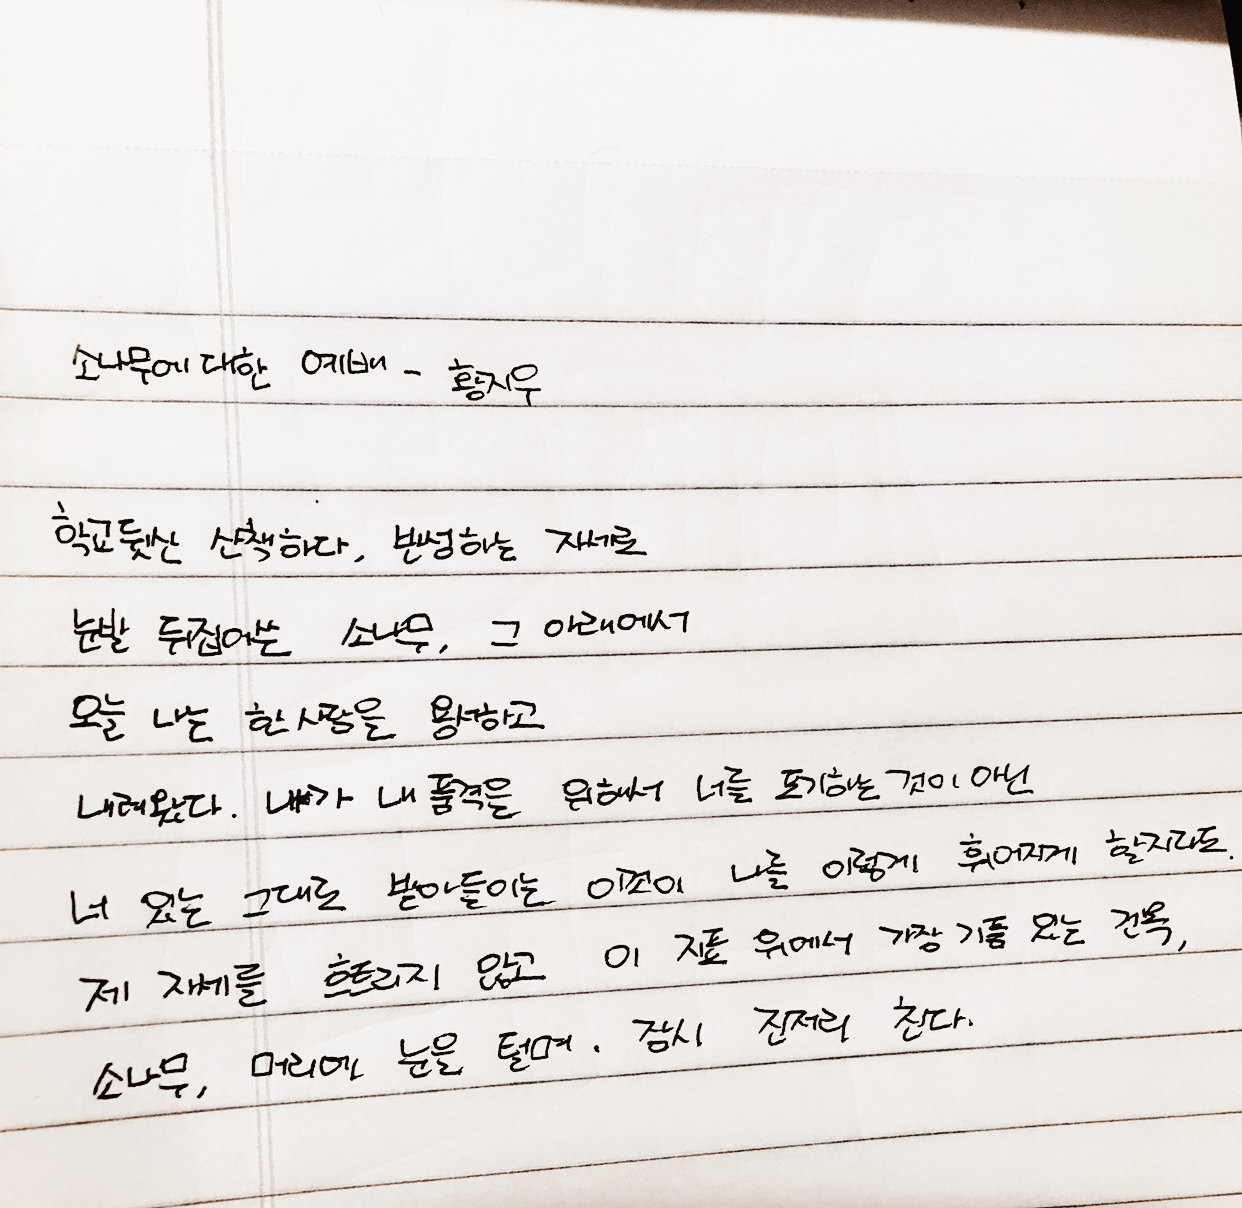 소나무에 대한 예배 - 황지우
학교 뒷산 산책하다, 반성하는 자세로
눈발 뒤집어쓴 소나무, 그 아래에서
오늘 나는 한 사람을 용서하고
내려왔다. 내가 내 품격을 위해서 너를 포기하는 것이 아닌
너 있는 그대로 받아들이는 이것이 나를 이렇게 휘어지게 할지라도.
제 자세를 흐트리지 않고 이 지표 위에서 가장 기품 있는 건목,
소나무, 머리에 눈을 털며. 잠시 진저리 친다.